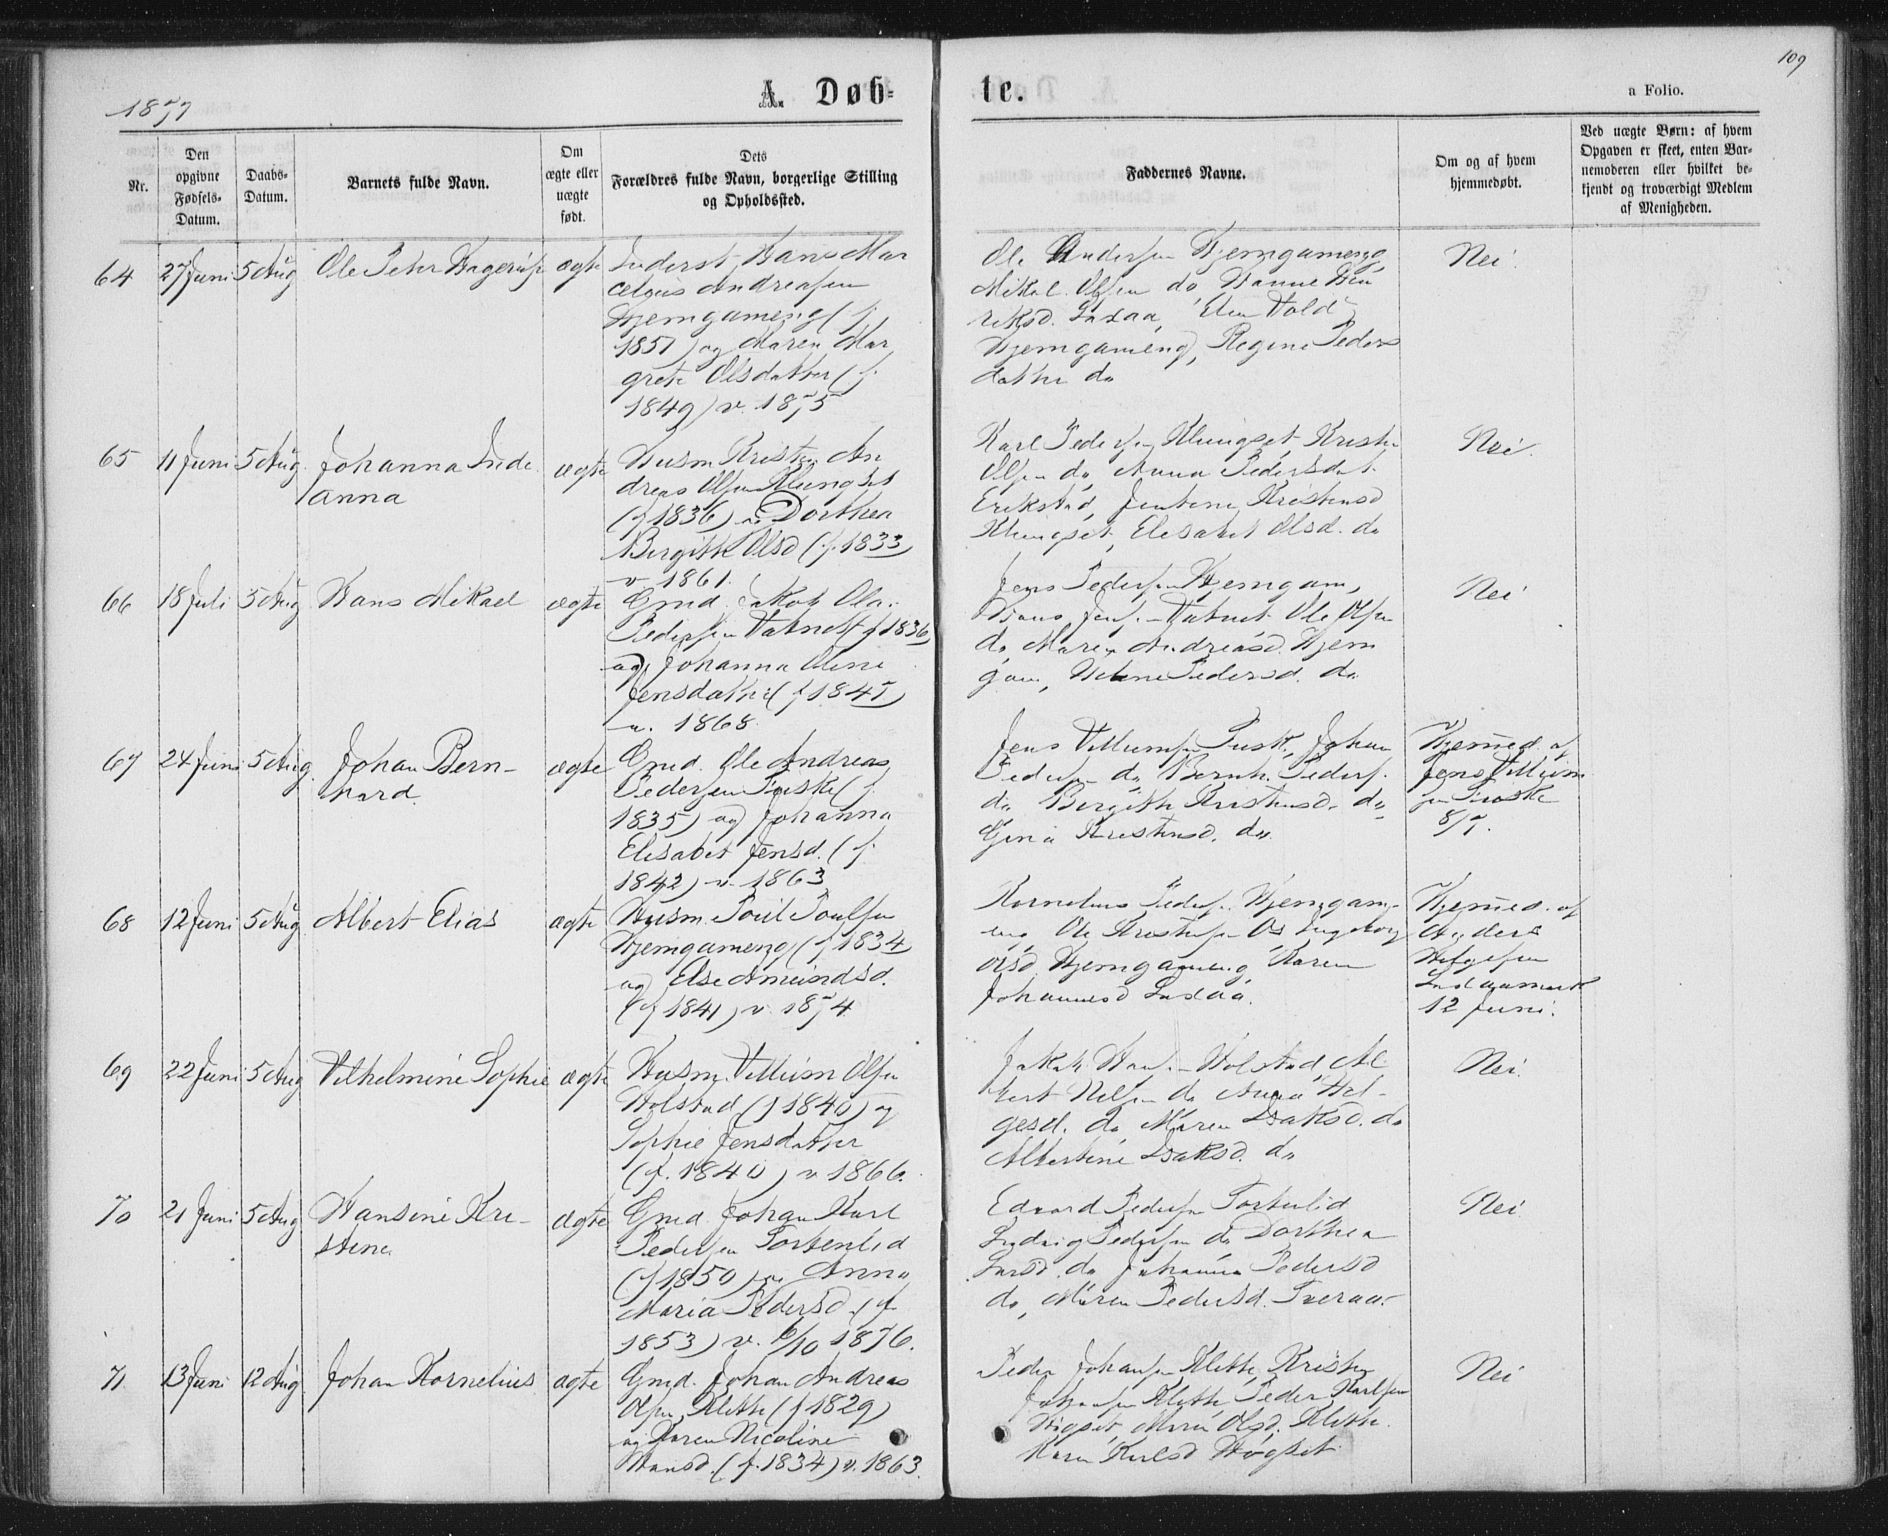 109
1877
A. Døb-
te.
a Folio.
Nr.
Den
opgivne
Fødsels-
Datum.
Daabs-
Datum.
Barnets fulde Navn.
Om
ægte eller
uægte
født.
Dets
Forældres fulde Navn, borgerlige Stilling
og Opholdssted.
Faddernes Navne.
Om og af hvem
hjemmedøbt.
Ved uægte Børn: af hvem
Opgaven er skeet, enten Bar-
nemoderen eller hvilket be-
kjendt og troværdigt Medlem
af Menigheden.
64 27 Juni 5 Aug Ole Peter Hagerup ægte
Inderst Hans Mar
celius Andreasen
Hjemgameng (f.
1851) og Maren Mar
grete Olsdatter (f.
1849) v. 1875
Ole Andersen Hjemgameng
Mikal Olsen do, Hanne Hen
riksd. Laxaa,
Hjemgameng, Regine Peders
datter do
Nei.
65 11 Juni 5 Aug. Johanna Inde
anna
ægte
Husm. Kristen An
dreas Olsen Klungset
(f 1836) og Dorthea
Birgitte Olsd (f. 1833)
v 1861.
Karl Pedersen Klungset, Kristen
Olsen do, Anna Pedersdat.
Erikstad, Jentine Kristensd
Klungset, Elisabet Olsd. do
Nei.
66 18 Juli 5 Aug Hans Mikael ægte
Gmd. Jakob Ola
Pedersen Vatnet (f 1836)
og Johanna Oline
Jensdatter (f 1845)
v. 1868.
Jens Pedersen Hjemgam,
Vatnet Ole Olsen
do, Maren Andreasd. Hjem
gam, Pedersd. do
Nei
67 24 Juni 5 Aug. Johan Bern-
hard.
ægte
Gmd. Ole Andreas
Pedersen Fuske (f.
1835) og Johanna
Elisabet Jensd. (f.
1842) v. 1863
Jens Villumsen Fusk, Johan
Pedersen do, Bernh. Peders.
do, Birgitte Kristensd. do,
Gina Kristensd. do.
Hjemmed. af
Jens Villum
sen Fuske
8/7.
68 12 Juni 5 Aug Albert Elias ægte
Husm. Poul Poulsen
Hjemgameng (f 1834
og Else Amundsd.
(f 1841) v. 1874
Kornelius Peders. Hjemgam-
eng Ole Kristensen Os Ingeborg
Olsd. Hjemgameng Karen
Johannesd Laxaa.
Hjemmed. af
Anders
Helgesen
12 Juni.
69 22 Juni 5 Aug Vilhelmine Sophie ægte
Husm. Villum Olsen
Holstad (f 1840) og
Sophie Jensdatter
(f. 1840) v 1866.
Jakob Hans. Holstad, Al
bert Nilsen do Anna Hel-
gesd. do, Maren Isaksd. do
Albertine Isaksd. do
Nei.
70 21 Juni 5 Aug Hansine Kri-
stine
ægte
Gmd. Johan Karl
Pedersen Tortenlid
(f 1850) og Anna
Maria Pedersd. (f
1853) v. 6/10 1876.
Edvard Pedersen Tortenlid
Ludvig Pedersen do Dorthea
Larsd. do Johanna Pedersd
do, Maren Pedersd. Tveraa.
Nei
71 13 Juni 12 Aug Johan Kornelius ægte
Gmd. Johan Andreas
Olsen Klette (f 1829)
og Karen Nicoline
Hansd. (f. 1834) v. 1863.
Peder Johansen Klette, Kristen
Johansen Klette, Peder Karlsen
Høgset, Maren Olsd. Klette
Karen Karlsd Høgset.
Nei